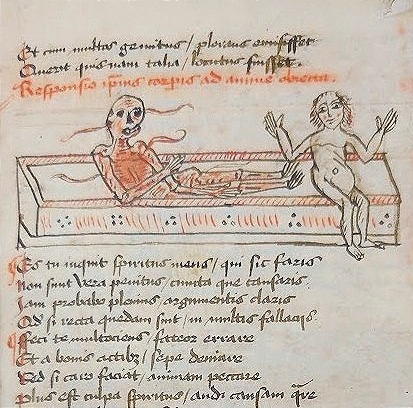 Et cum multos gemitus / plorans emisisset
Querit quisnam talia / locutus fuisset.
Responsio ipius corpis ad anime obiecta.
Es tu inquit spiritus meus / qui sic faris
non sunt vera penitus / cuncta que causaris.
Iam probabo plenius / argumentis claris
Qd si recta quedam sint / in multis fallaris
Feci te multociens / fateor errare
Et a bonis actibz / sepe deuiare
Sed si caro faciat / animam peccare
Plus est culpa spiritus / audi causam qre